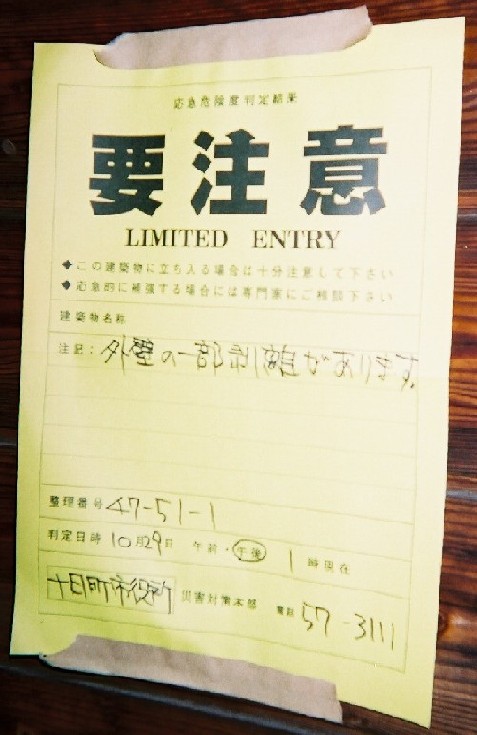 応急危険度判定結果
要注意
LIMITED ENTRY
◆この建築物に立ち入る場合は十分注意して下さい
◆応急的に補強する場合には専門家にご相談下さい
建築物名称
注記：外壁の一部剥離があります。
整理番号 47-51-1
判定日時 10月29日 午前・午後 1時現在
十日町市役所 災害対策本部 電話 57-3111